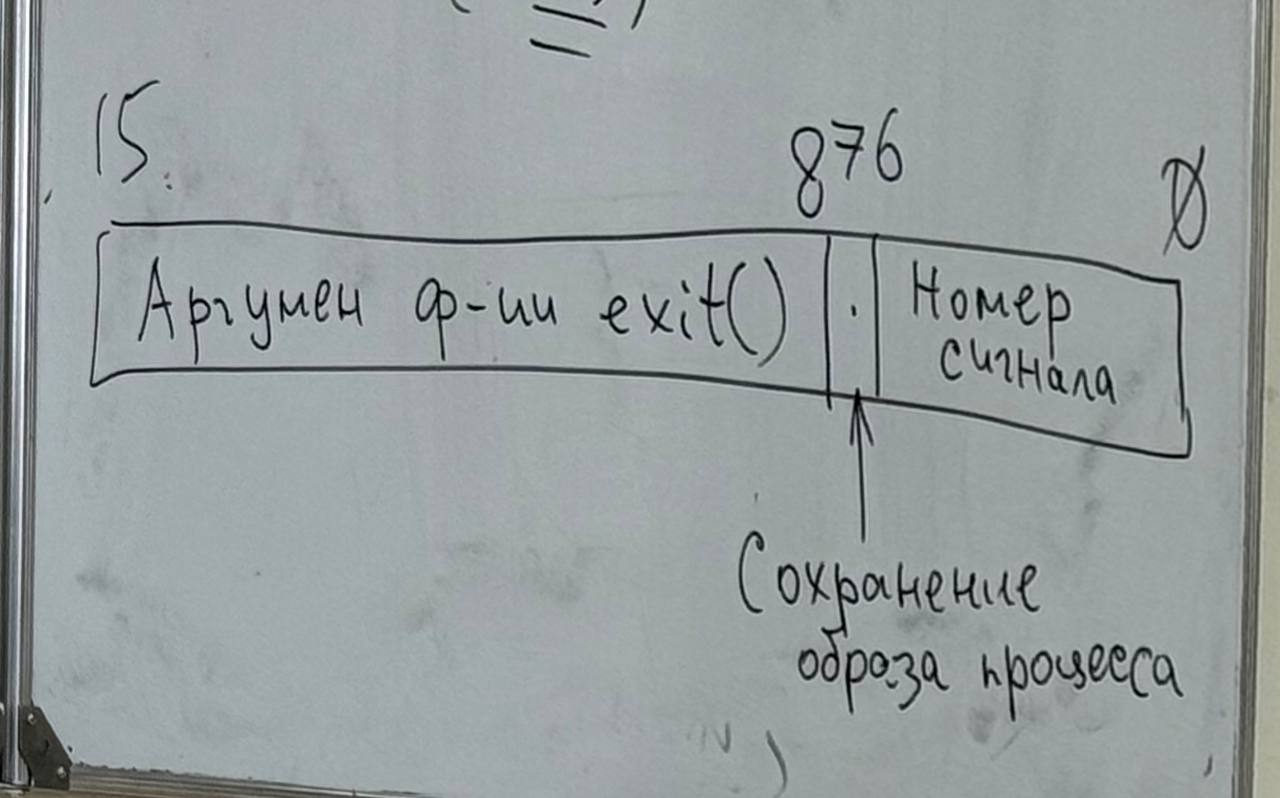 15
876
0
Аргумен ф-ии exit()
Номер
сигнала
Сохранение
образа процесса